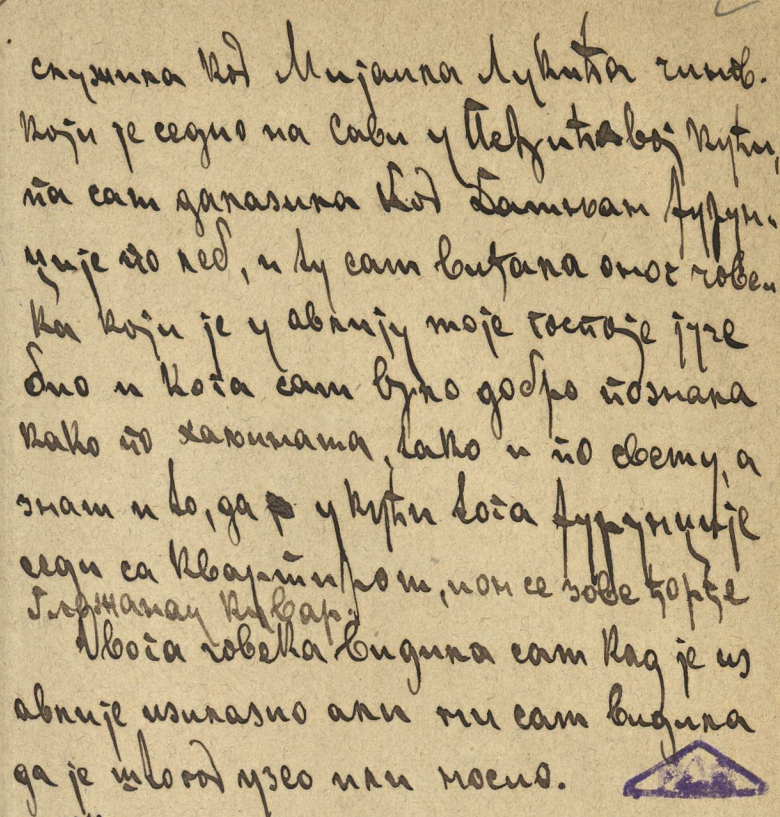 служила код Мијаила Лукића чинов.
који је седио на Сави у кући,
па сам далазила код фурун-
џије по леб, и ту сам виђала оног чове-
ка који је у авлију моје госпоје јуче
био и кога сам врло добро познала
како по хаљинама, тако и по свему, а
знам и то, да у кући тога фурунџије
седи са квартиром, и он се зове Ђорђе
Овога човека видила сам кад је из
авлије изилазио али ни сам видила
да је штогод узео или носио.